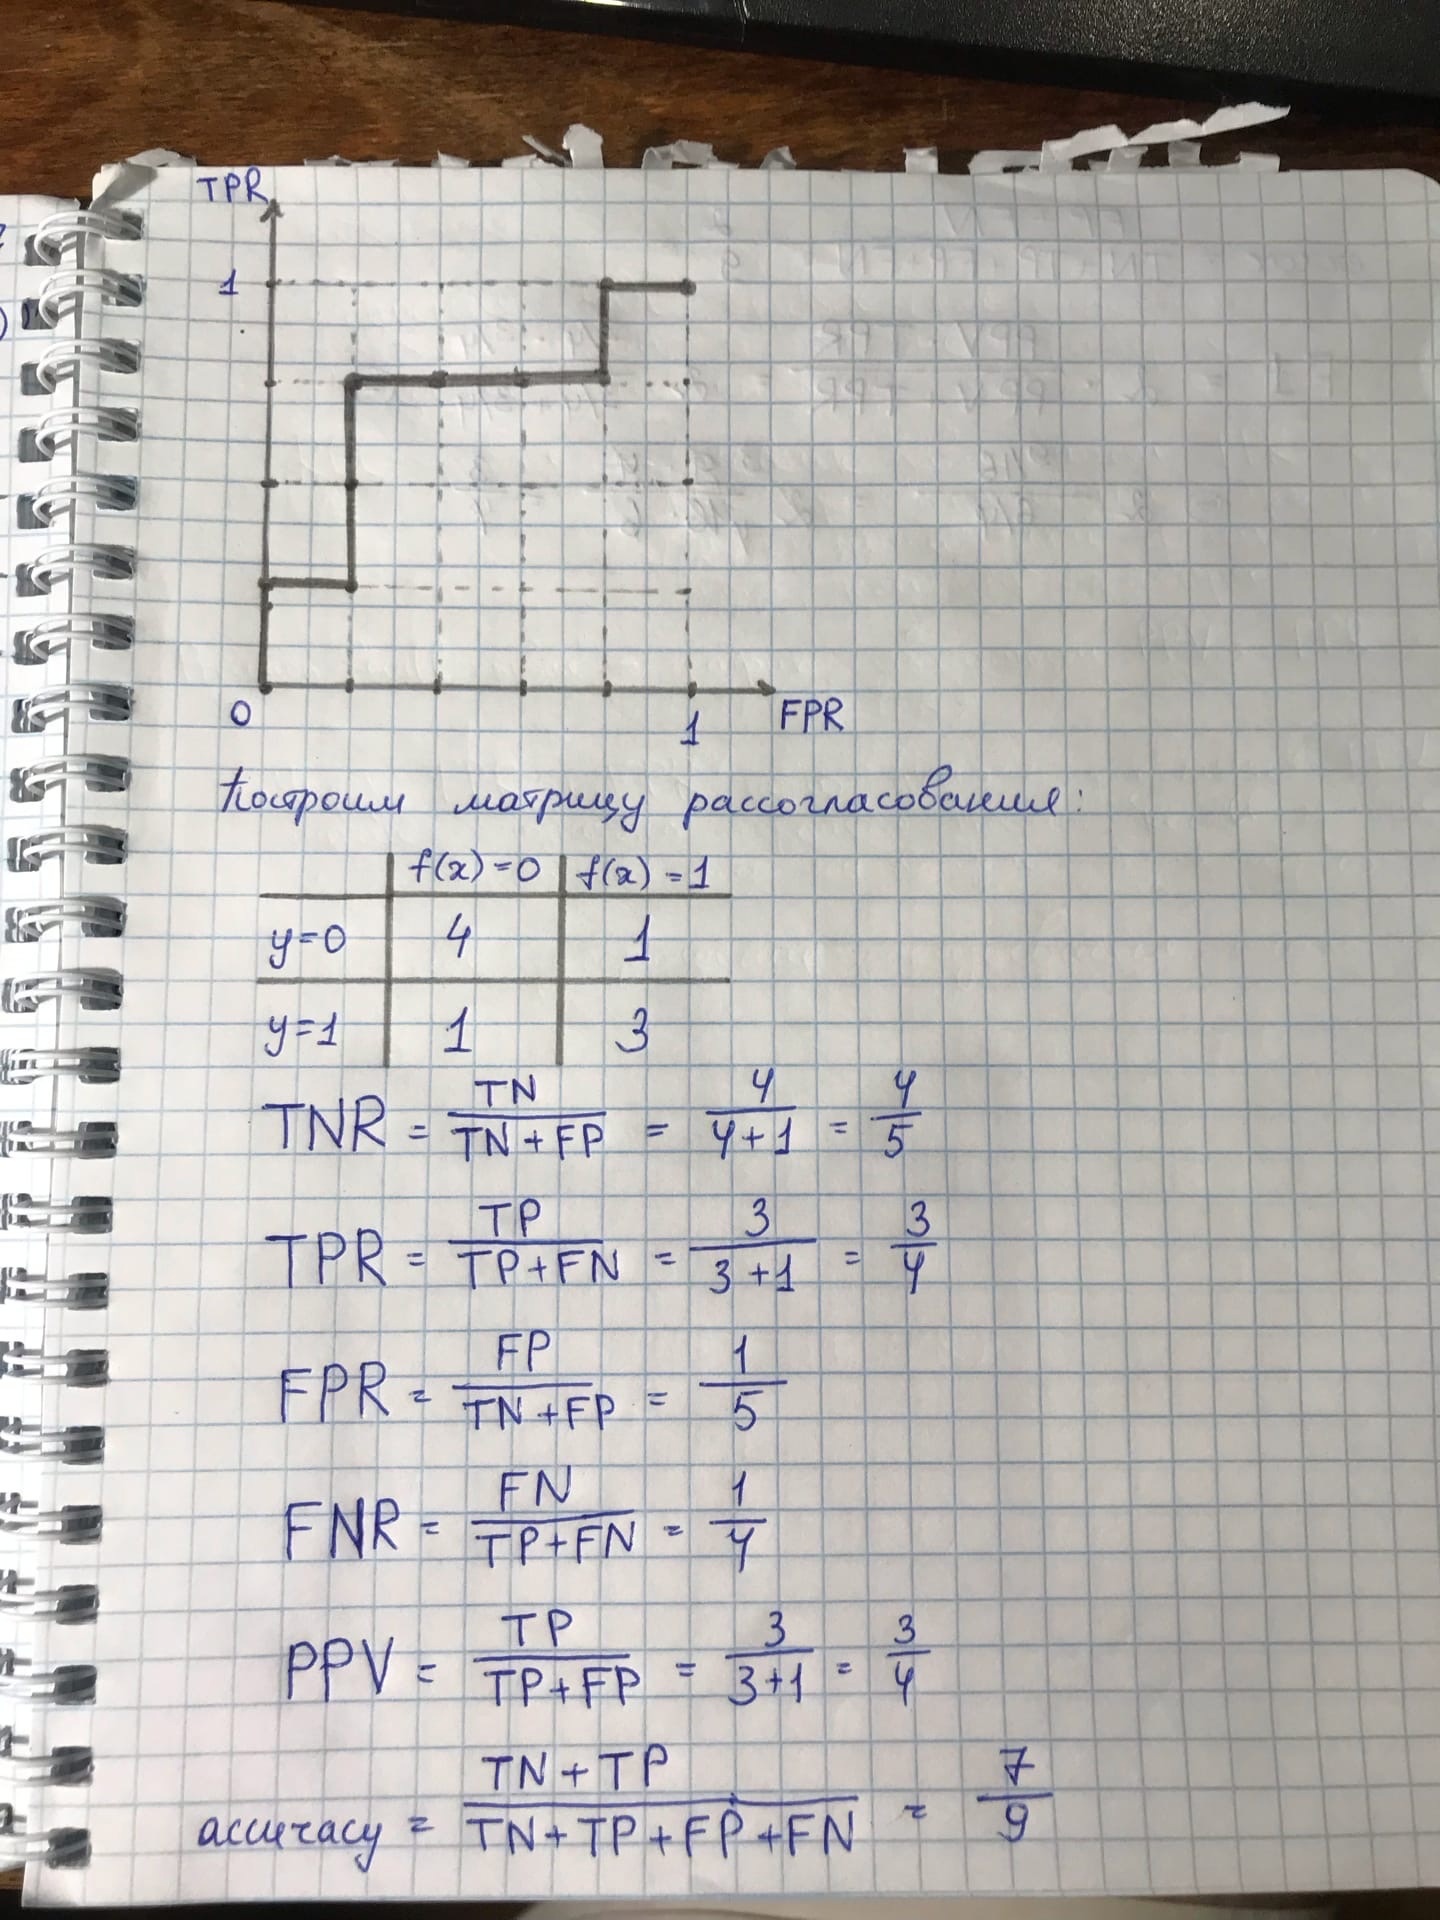 TPR
1
0
1
FPR
Построим матрицу рассогласования:
f(x)=0 f(x)=1
y=0 4 1
y=1 1 3
TNR = TN/(TN+FP) = 4/(4+1) = 4/5
TPR = TP/(TP+FN) = 3/(3+1) = 3/4
FPR = FP/(TN+FP) = 1/5
FNR = FN/(TP+FN) = 1/4
PPV = TP/(TP+FP) = 3/(3+1) = 3/4
accuracy = (TN+TP)/(TN+TP+FP+FN) = 7/9